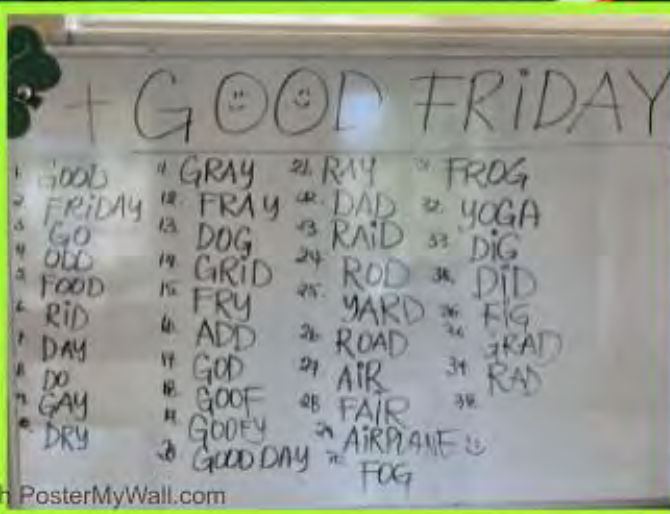 + GOOD FRiDAY
1. GOOD
2. FRiDAY
3. GO
4. ODD
5. FOOD
6. RiD
7. DAY
8. DO
9. GAY
10. DRY
11. GRAY
12. FRAY
13. DOG
14. GRiD
15. FRY
16. ADD
17. GOD
18. GOOF
19. GOOFY
20 GOOD DAY
21. RAY
22. DAD
23. RAiD
24. ROD
25. YARD
26. ROAD
27 AiR
28 FAiR
29 AiRPLANE
30. FOG
31. FROG
32. YOGA
33. DiG
34. DiD
35. FiG
36. GRAD
37 RAD
38.
h PosterMyWall.com